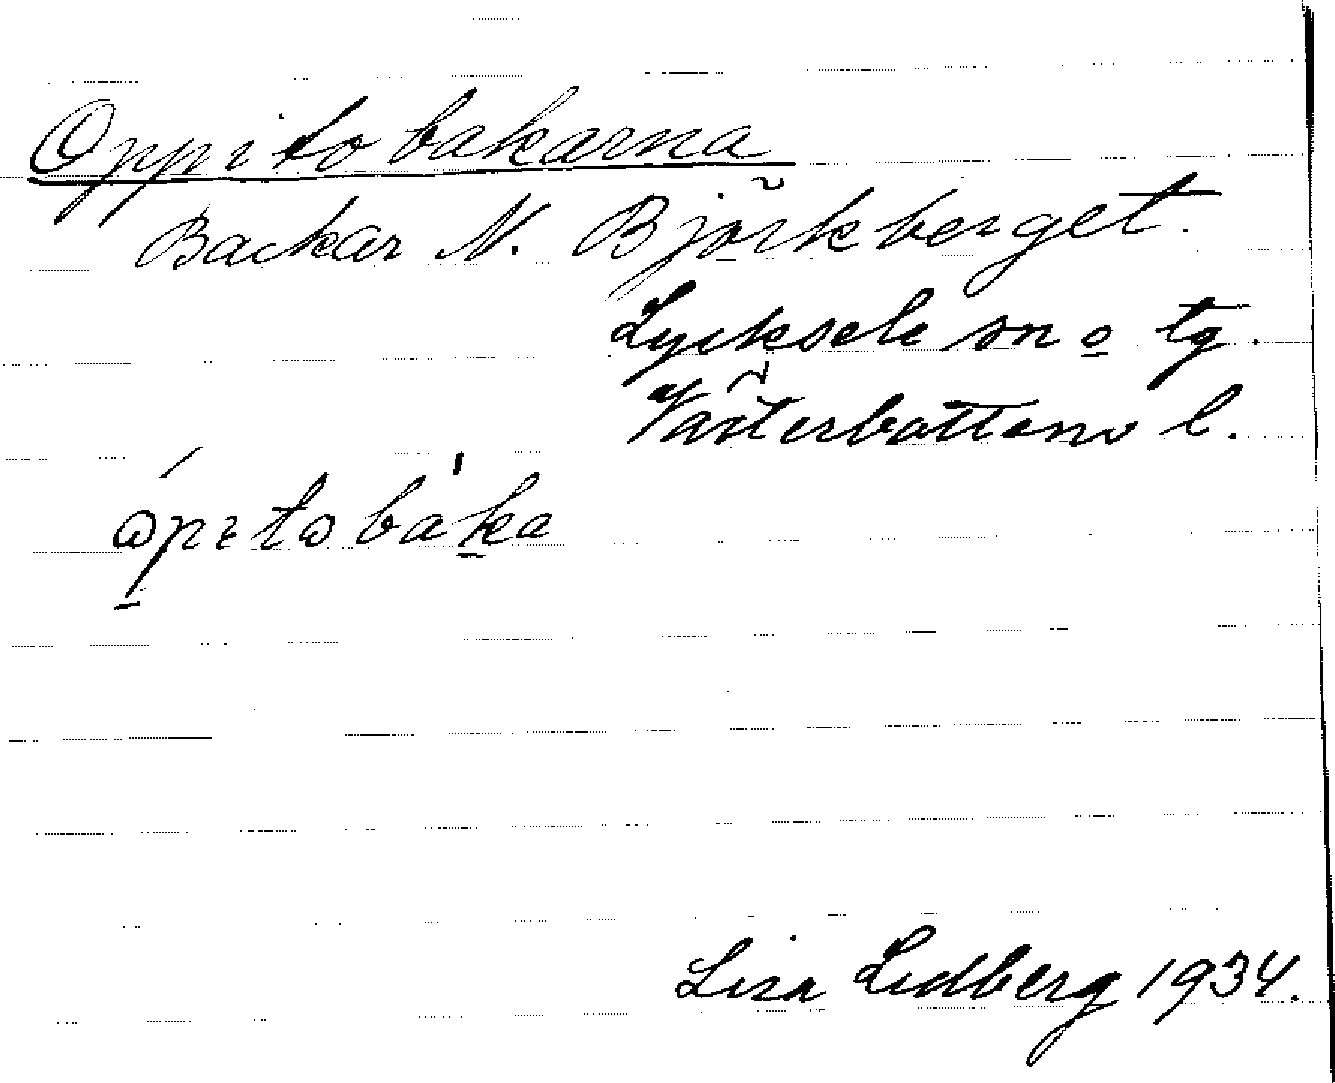 Oppito bakarna
Backar N. Björkberget.
Lycksele sn o tg.
Västerbottens l.
Lisa Lidberg 1934.